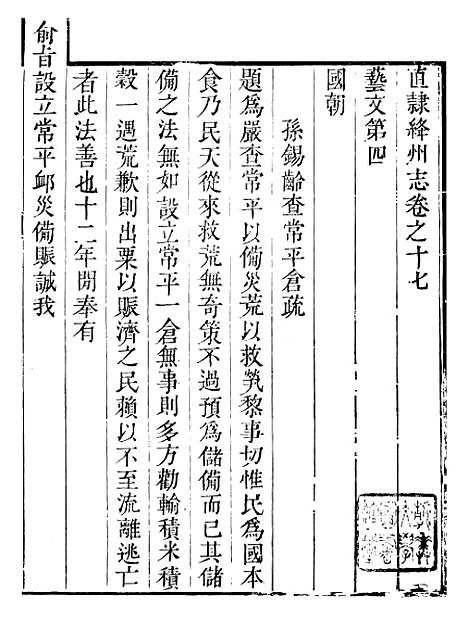 直隷絳州志卷之十七
藝文第四
國朝
孫錫齡查常平倉疏
題爲嚴查常平以備災荒以救煢黎事切惟民爲國本
食乃民天從來救荒無奇策不過預爲儲備而已其儲
備之法無如設立常平一倉無事則多方勸輸積米積
穀一遇荒歉則出粟以賑濟之民賴以不至流離逃亡
者此法善也十二年閒奉有
俞旨設立常平䘏災備賑誠我